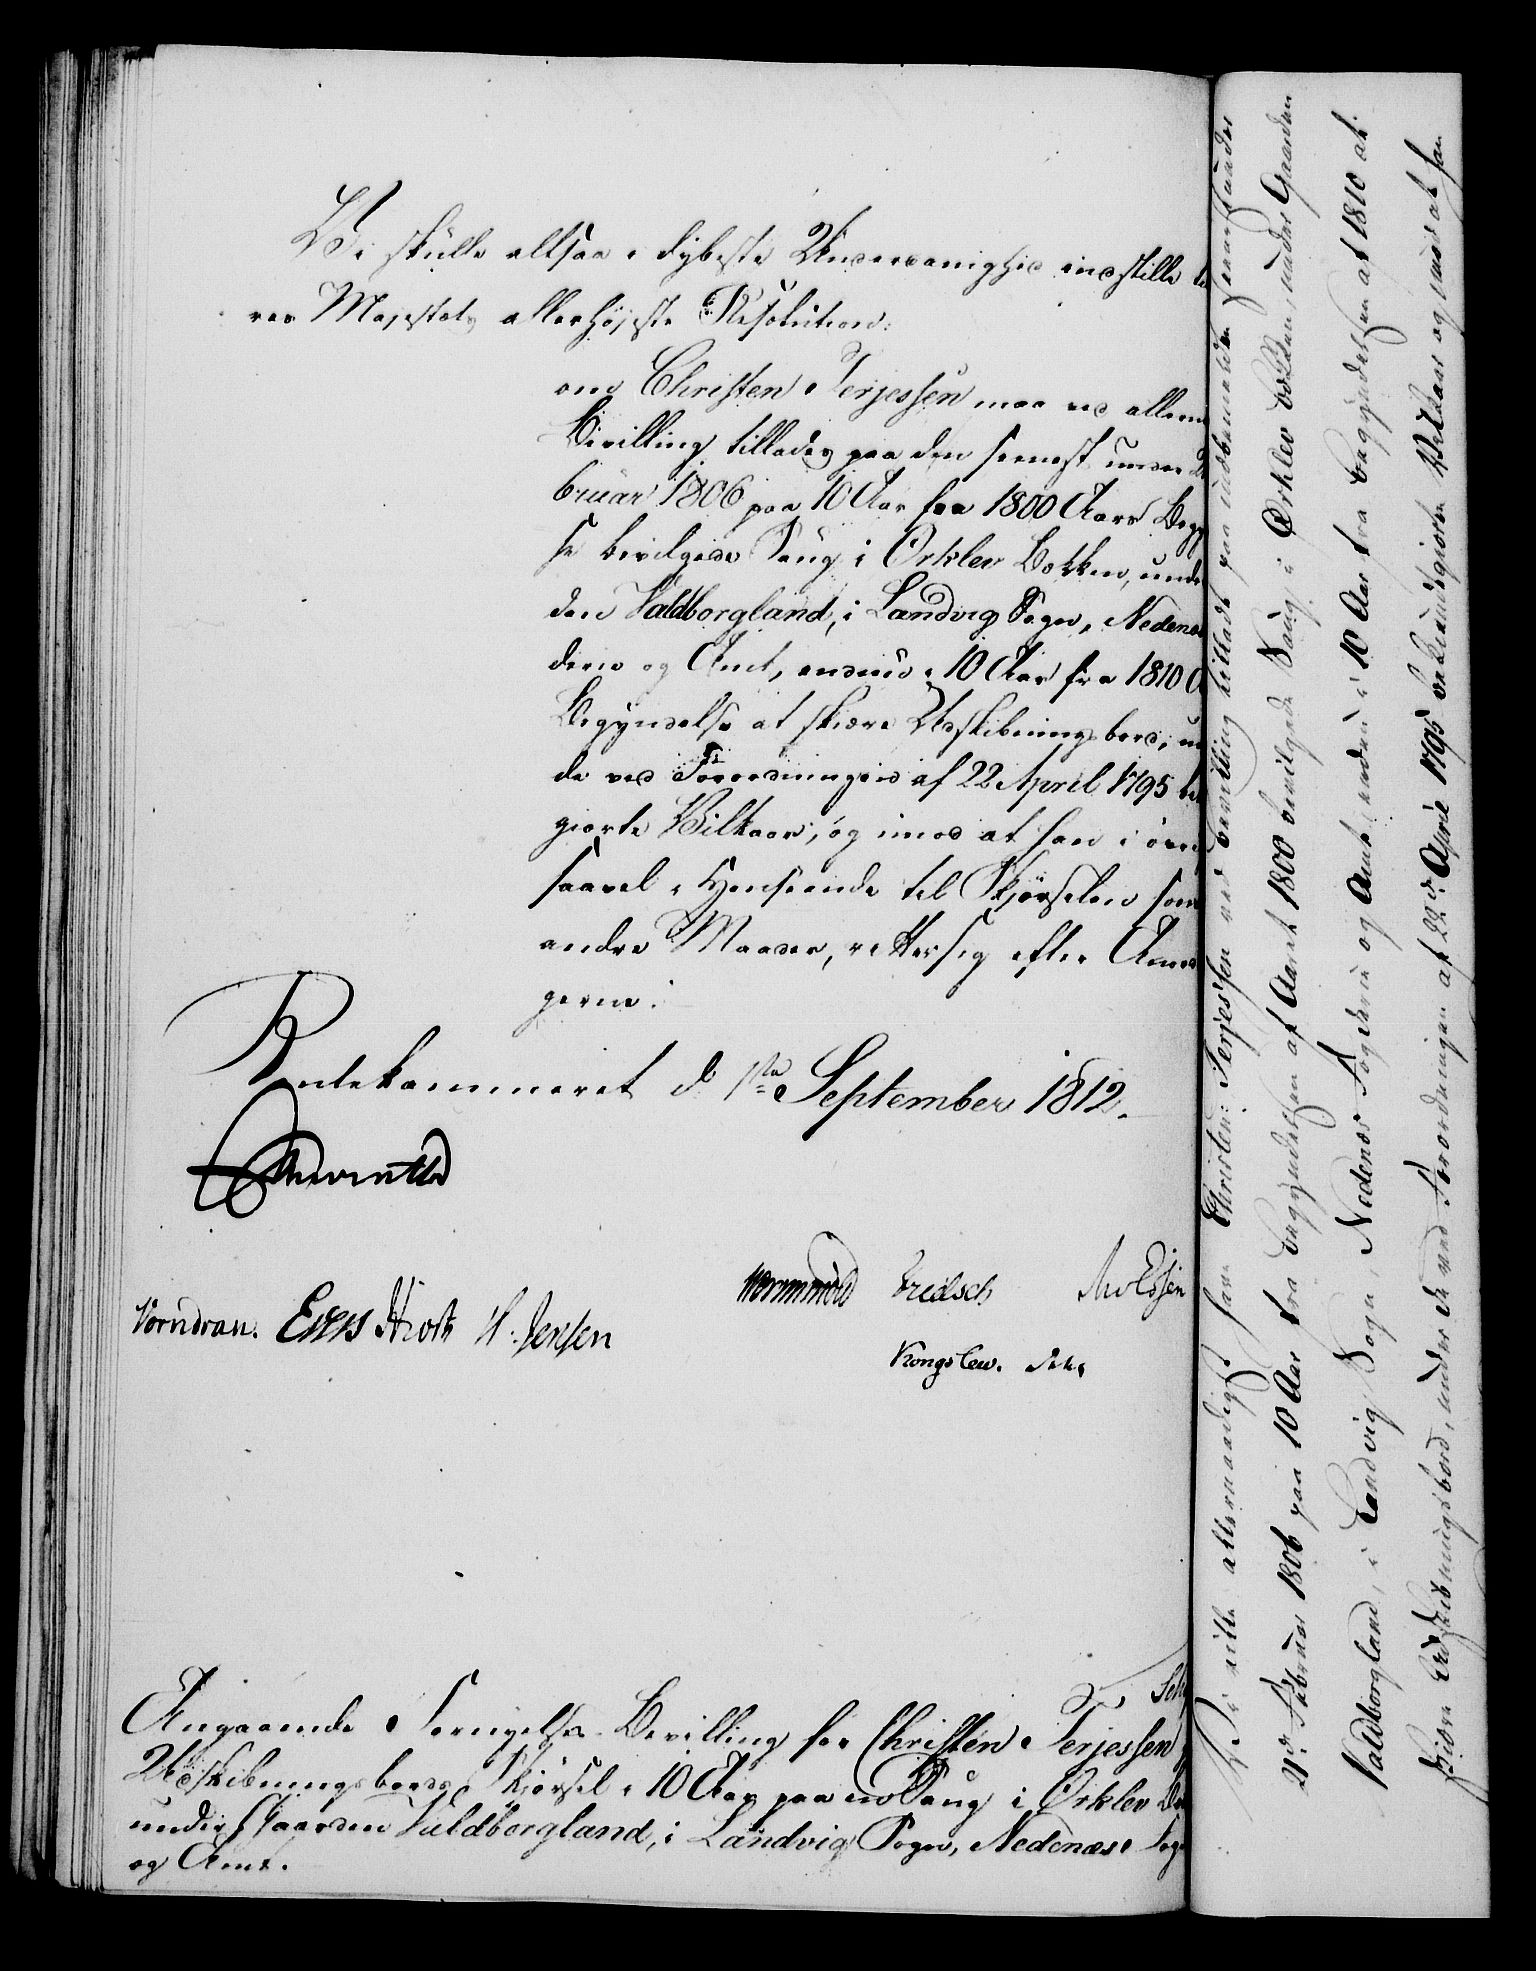 Vi skulle altsaa i dybeste Underdanighed indstille
res Majestæts allerhøjeste Resolution:
om Christen Terjessen maa ved allern
Bevilling tillades paa den seenest under
bruar 1806 paa 10 Aar fra 1800 Aars Begy
se bevilgede Saug i Ørklev Bækken, unde
den Valdborgland, i Landvig Sogn, Nedenæs
derie og Amt, endnu i 10 Aar fra 1810
Begyndelse at skiære Udskibningsbord, un
de ved Forordningen af 22 April 1795 be
giorte Vilkaar, og imod at han i øvr
saavel i Henseende til Skjørselen som
andre Maader, retter sig efter Anor
gerne.
Rentekammeret d. 1ste September 1812.
Vorndran. Evers Hiort H. Jensen
Wormskiold Fridsch
Kongslew.
Angaaende Fornyelses-Bevilling for Christen Terjessen
Udskibningsbords Skjørsel i 10 Aar paa en Saug i Ørklev
under Gaarden Valdborgland, i Landvig Sogn, Nedenæs Fog
og Amt.
Vi ville allernaadigst have Christen Terjessen ved Bevilling tilladt paa indbemeldte
21de Februar 1806 paa 10 Aar fra Begyndelsen af Aaret 1800 bevilgede Saug i Ørklev Bækken, under Gaarden
Valdborgland, i Landvig Sogn, Nedenæs Fogderie og Amt, endnu i 10 Aar fra Begyndelsen af 1810 at
skiære Udskibningsbord, under de ved Forordningen af 22de April 1795 bekiendtgiorte Vilkaar og imod at han